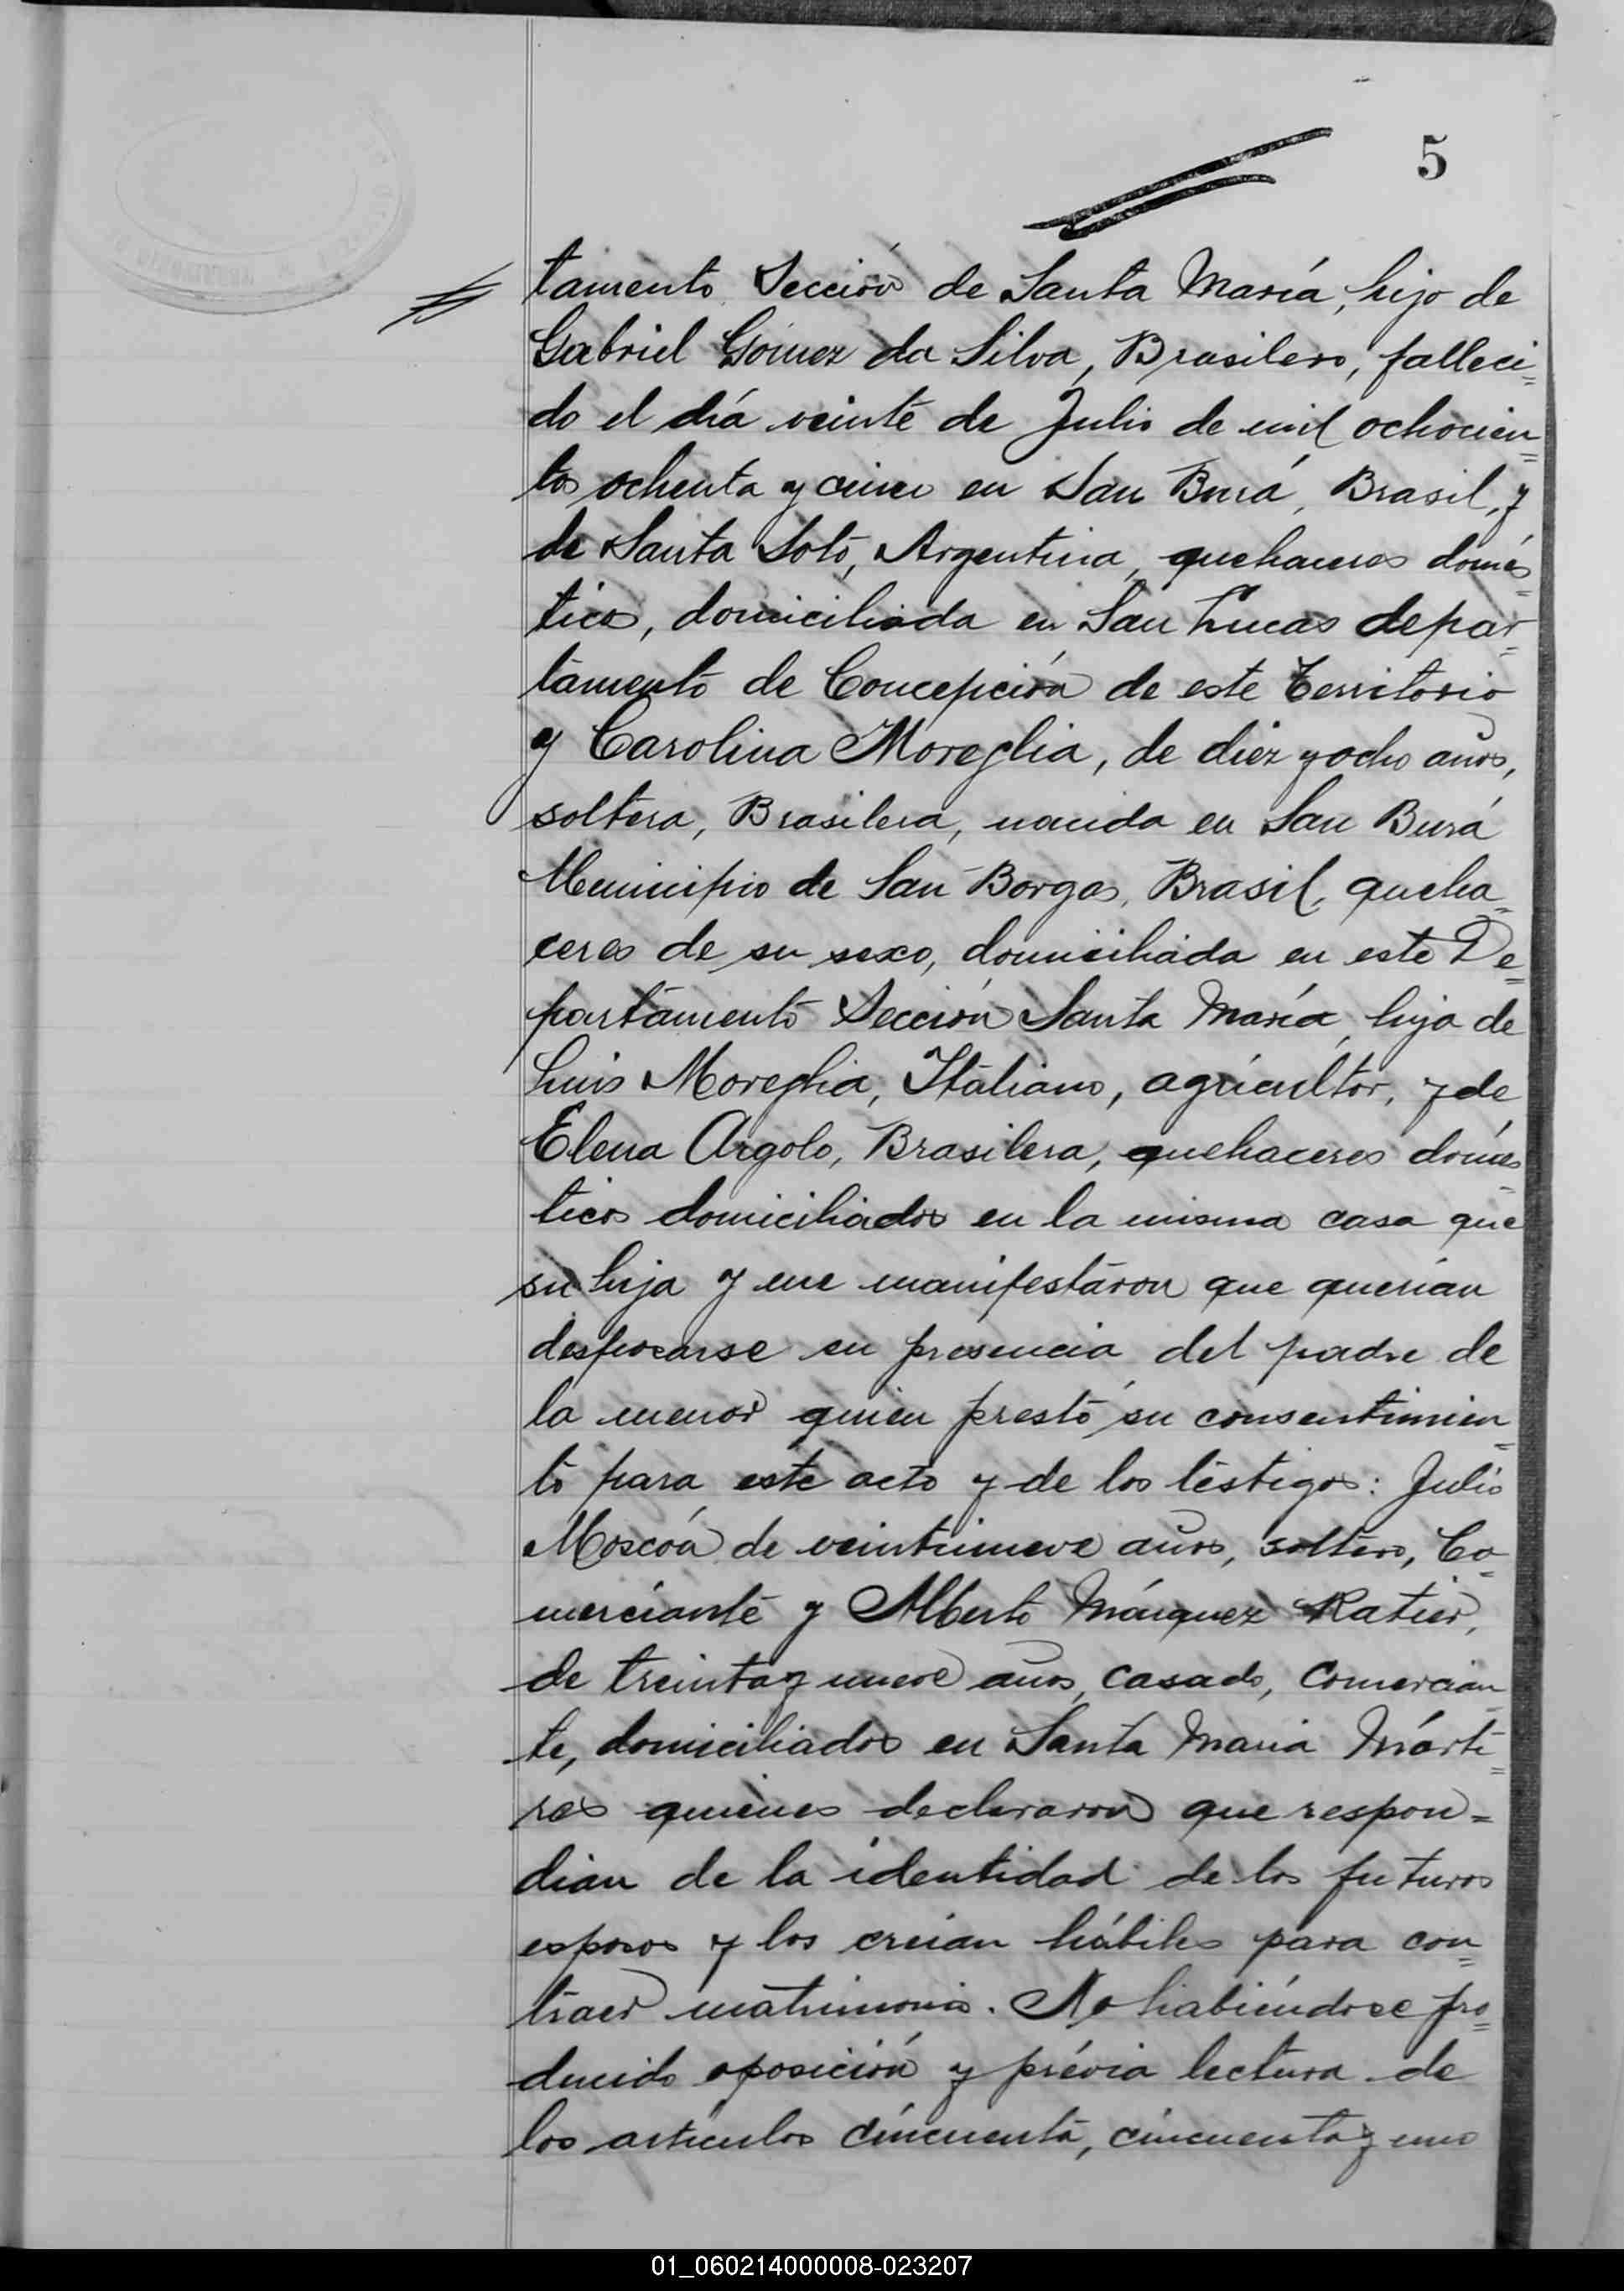 5
tamento Sección de Santa María, hijo de
Gabriel Gómez da Silva, Brasilero, falleci=
do el día veinte de Julio de mil ochocien=
tos ochenta y cinco en San Burá, Brasil, y
de Santa Soto, Argentina, quehaceres domés=
ticos, domiciliada en San Lucas depar=
tamento de Concepción de este Territorio
y Carolina Moreglia, de diez y ocho años,
soltera, Brasilera, nacida en San Burá
Municipio de San Borgas, Brasil, queha=
ceres de su sexo, domiciliada en este De=
partamento Sección Santa María, hija de
Luis Moreglia, Italiano, agricultor, y de
Elena Argolo, Brasilera, quehaceres domés=
ticos domiciliados en la misma casa que
su hija y me manifestaron que querían
desposarse en presencia del padre de
la menor quien prestó su consentimien=
to para este acto y de los testigos: Julio
Moscoá de veintinueve años, soltero, Co=
merciante y Alberto Márquez Ratier,
de treinta y nueve años, casado, comercian=
te, domiciliados en Santa Maria Márti=
res quienes declararon que respon=
dian de la identidad de los futuros
esposos y los creian hábiles para con=
traer matrimonio. No habiéndose pro=
ducido oposición y prévia lectura de
los artículos cincuenta, cincuenta y uno
01_060214000008-023207